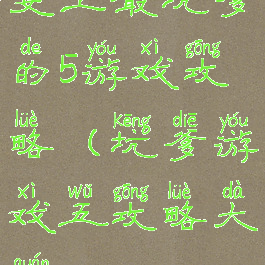 de yóu xì gōng
的5游戏攻
lüè kēng diē yóu
略(坑爹游
xì wǔ gōng lüè dà
戏五攻略大